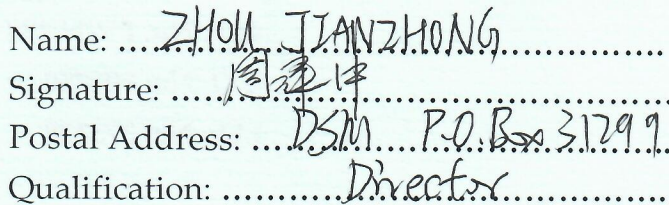 Name: ZHOU JIANZHONG
Signature: 周建中
Postal Address: DSM P.O.Box 31299
Qualification: Director